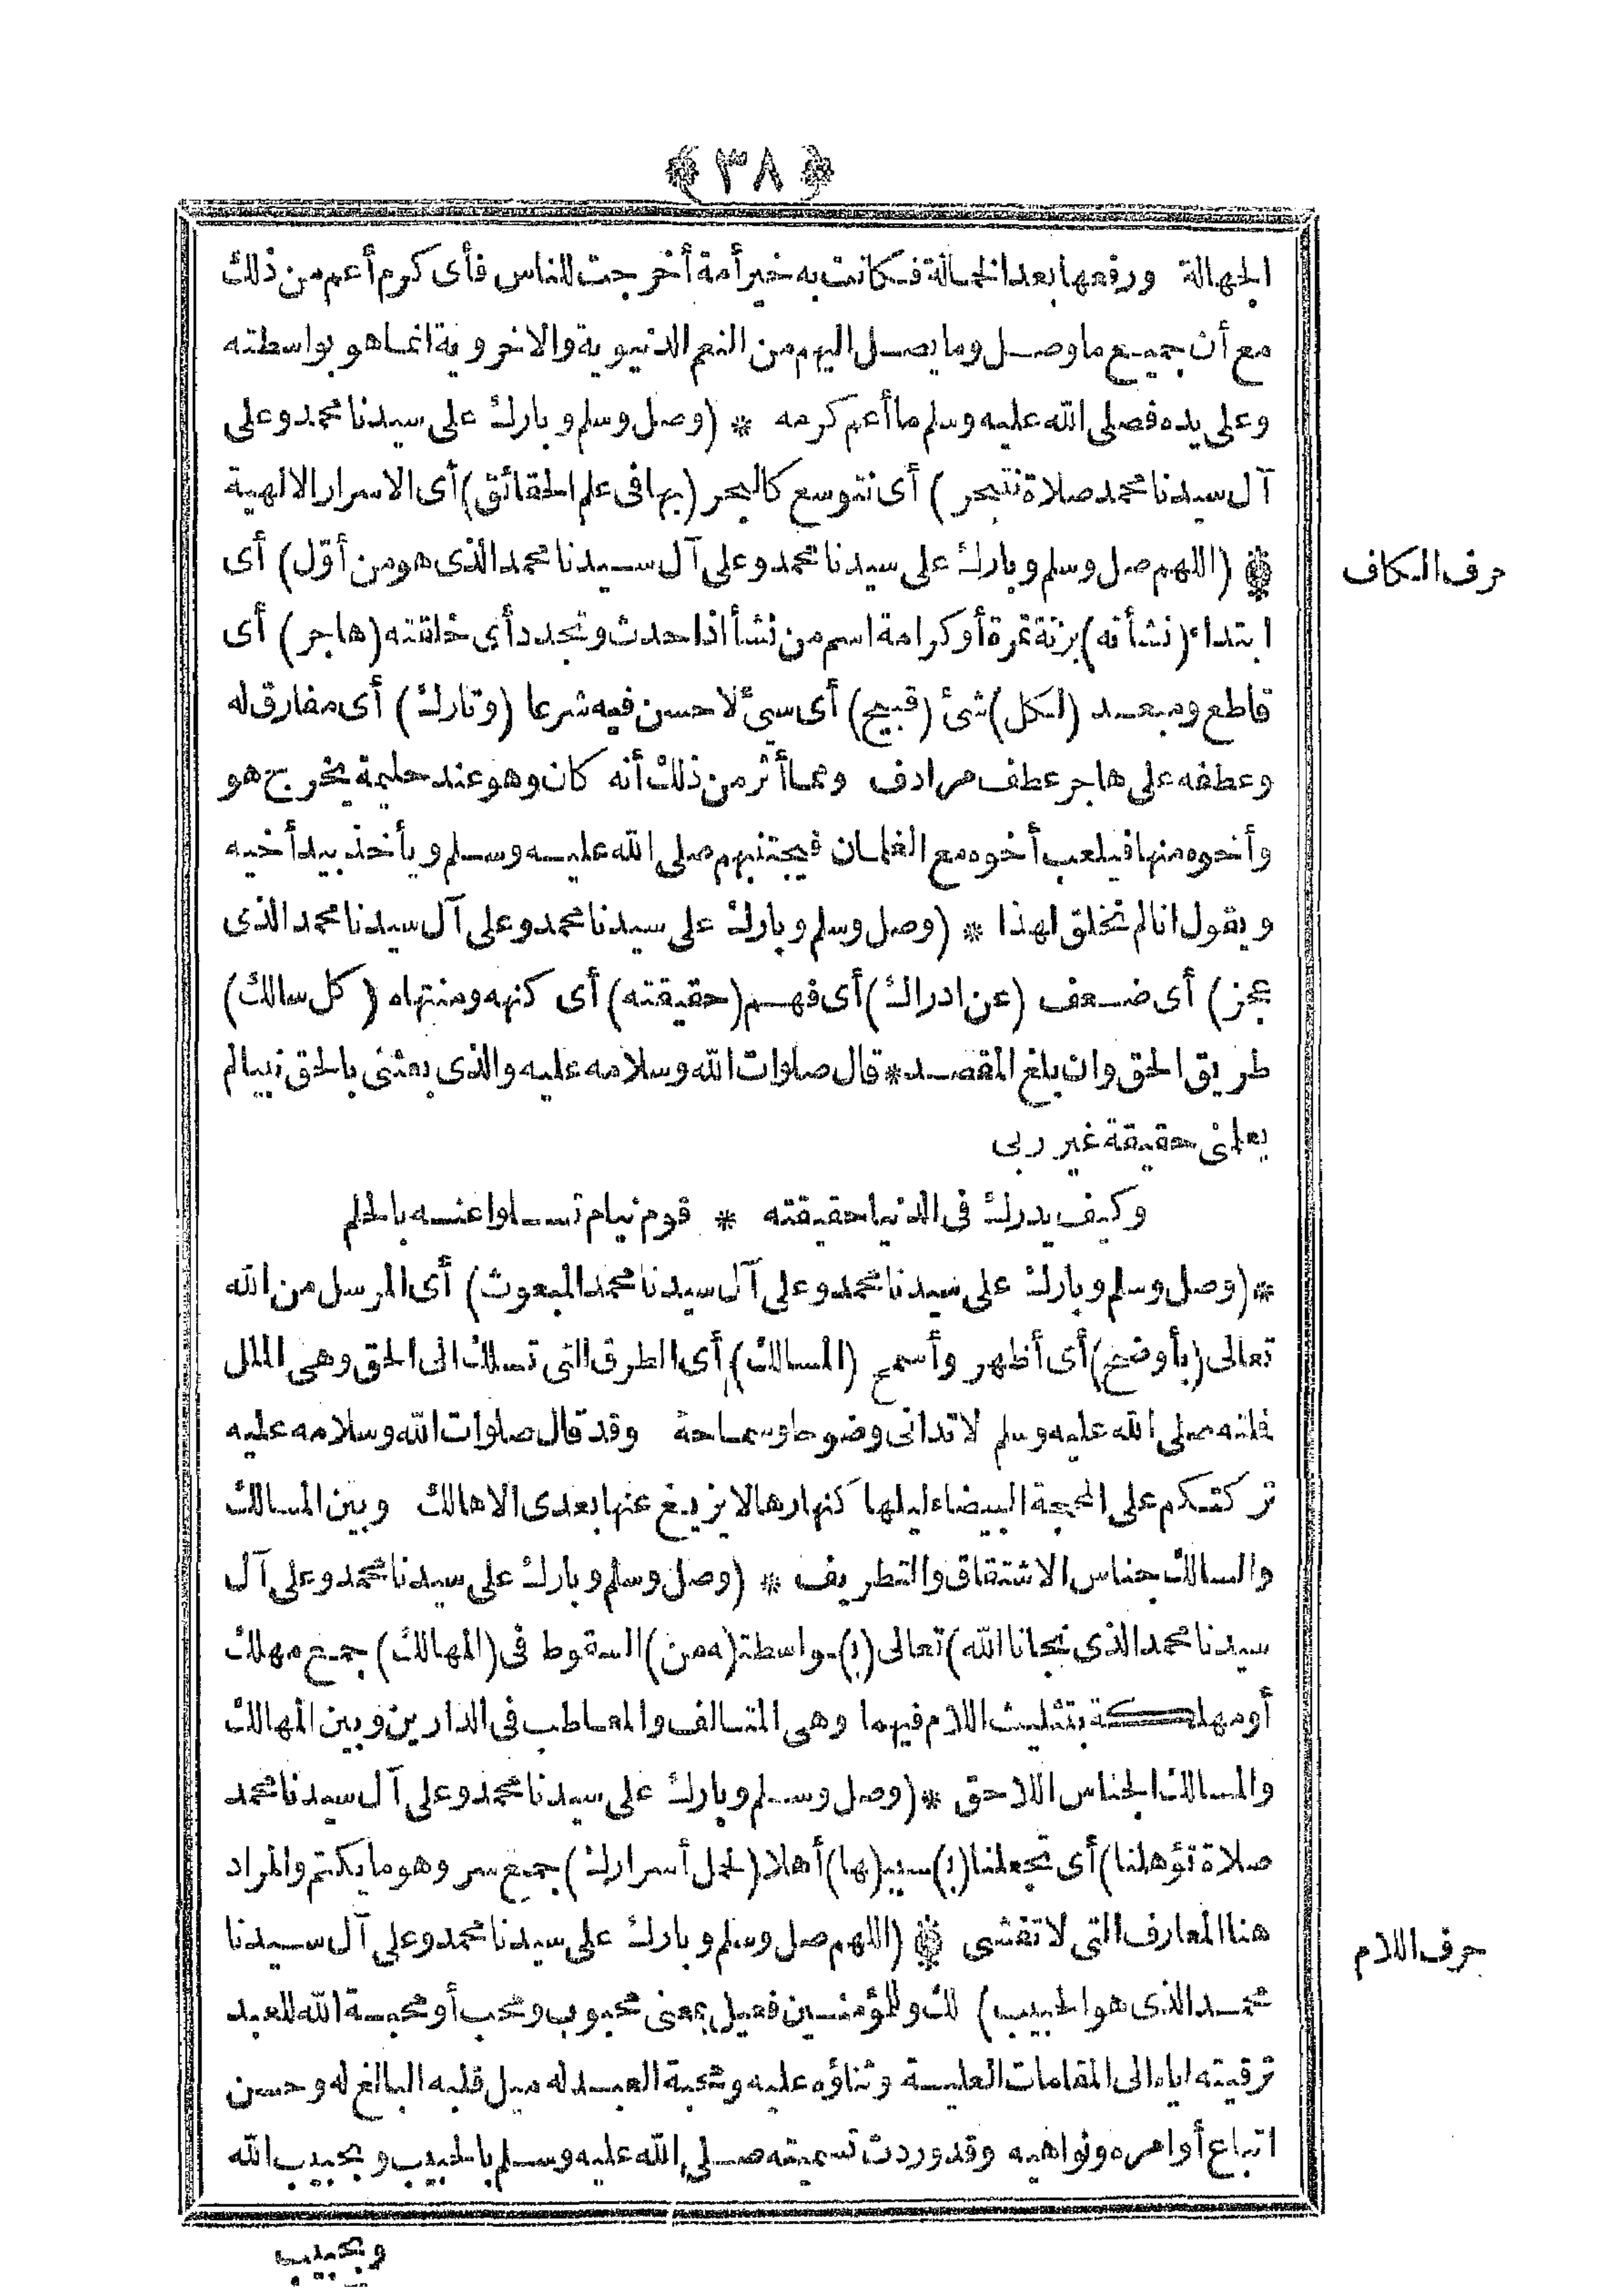 ﴿ ٣٨ ﴾
الجهالة ورفعها بعد الخمالة فكانت به خير أمة أخرجت للناس فأى كرم أعم من ذلك
مع أن جميع ما وصل وما يصل اليهم من النعم الدنيوية والاخروية انما هو بواسطته
وعلى يده فصلى الله عليه وسلم ما أعم كرمه * (وصل وسلم وبارك على سيدنا محمد وعلى
آل سيدنا محمد صلاة نتبحر) أى نتوسع كالبحر (بها فى علم الحقائق) أى الاسرار الالهية
(اللهم صل وسلم وبارك على سيدنا محمد وعلى آل سيدنا محمد الذى هو من أوّل) أى
حرف الكاف
ابتداء (نشأته) بزنة تمرة أو كرامة اسم من نشأ اذا حدث وتجدد أى خلقته (هاجر) أى
قاطع ومبعد (لكل) شئ (قبيح) أى سيئ لا حسن فيه شرعا (وتارك) أى مفارق له
وعطفه على هاجر عطف مرادف ومما أثر من ذلك أنه كان وهو عند حليمة يخرج هو
وأخوه منها فيلعب أخوه مع الغلمان فيجتنبهم صلى الله عليه وسلم ويأخذ بيد أخيه
ويقول انا لم نخلق لهذا * (وصل وسلم وبارك على سيدنا محمد وعلى آل سيدنا محمد الذى
عجز) أى ضعف (عن ادراك) أى فهم (حقيقته) أى كنهه ومنتهاه (كل سالك)
طريق الحق وان بلغ المقصد * قال صلوات الله وسلامه عليه والذى بعثنى بالحق نبيا لم
يعلمنى حقيقة غير ربى
وكيف يدرك فى الدنيا حقيقته * قوم نيام تسلوا عنه بالحلم
* (وصل وسلم وبارك على سيدنا محمد وعلى آل سيدنا محمد المبعوث) أى المرسل من الله
تعالى (بأوضح) أى أظهر وأسمح (المسالك) أى الطرق التى تسلك الى الحق وهى الملل
فلته صلى الله عليه وسلم لا تدانى وضوحا وسماحة وقد قال صلوات الله وسلامه عليه
تركتكم على المحجة البيضاء ليلها كنهارها لا يزيغ عنها بعدى الا هالك وبين المسالك
والسالك جناس الاشتقاق والتطريف * (وصل وسلم وبارك على سيدنا محمد وعلى آل
سيدنا محمد الذى نجانا الله) تعالى (ب) واسطة (ه من) السقوط فى (المهالك) جمع مهلك
أو مهلكة بتثليث اللام فيهما وهى المتالف والمعاطب فى الدارين وبين المهالك
والمسالك الجناس اللاحق * (وصل وسلم وبارك على سيدنا محمد وعلى آل سيدنا محمد
صلاة تؤهلنا) أى تجعلنا (ب) سبب (ها) أهلا (لحمل أسرارك) جمع سر وهو ما يكتم والمراد
هنا المعارف التى لا تفشى (اللهم صل وسلم وبارك على سيدنا محمد وعلى آل سيدنا
حرف اللام
محمد الذى هو الحبيب) لك وللمؤمنين فعيل بمعنى محبوب ومحب أو محبة الله للعبد
ترقيته اياه الى المقامات العلية وثناؤه عليه ومحبة العبد له ميل قلبه البالغ له وحسن
اتباع أوامره ونواهيه وقد وردت تسميته صلى الله عليه وسلم بالحبيب وبحبيب الله
وبحبيب